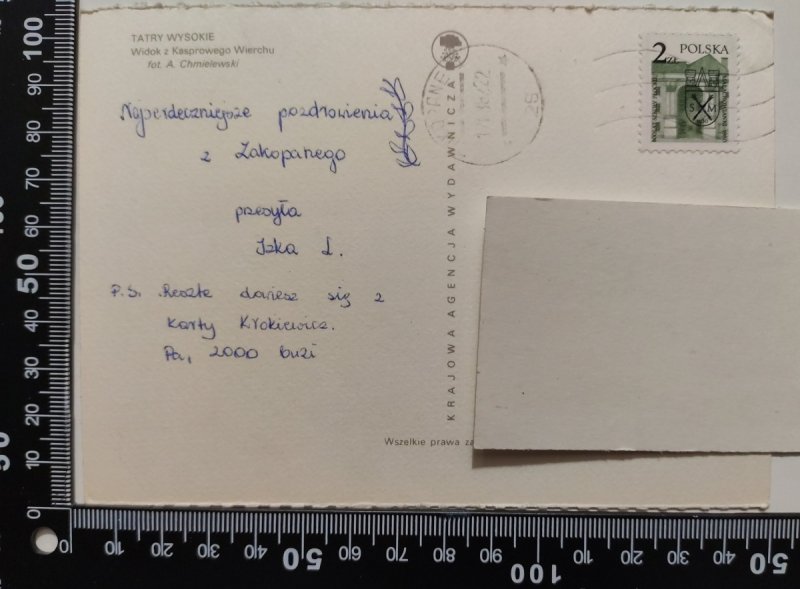 TATRY WYSOKIE
Widok z Kasprowego Wierchu
fot. A. Chmielewski
Najserdeczniejsze pozdrowienia
z Zakopanego
przesyła
Izka L.
P.S. Resztę dowiesz się z
karty Krokiewicz.
Pa, 2000 buzi
KRAJOWA AGENCJA WYDAWNICZA
Wszelkie prawa
2 ZŁ
POLSKA
S M
26
100
90
80
70
60
50
40
30
20
10
0
0
10
20
30
40
50
60
70
80
90
100
10
20
30
40
50